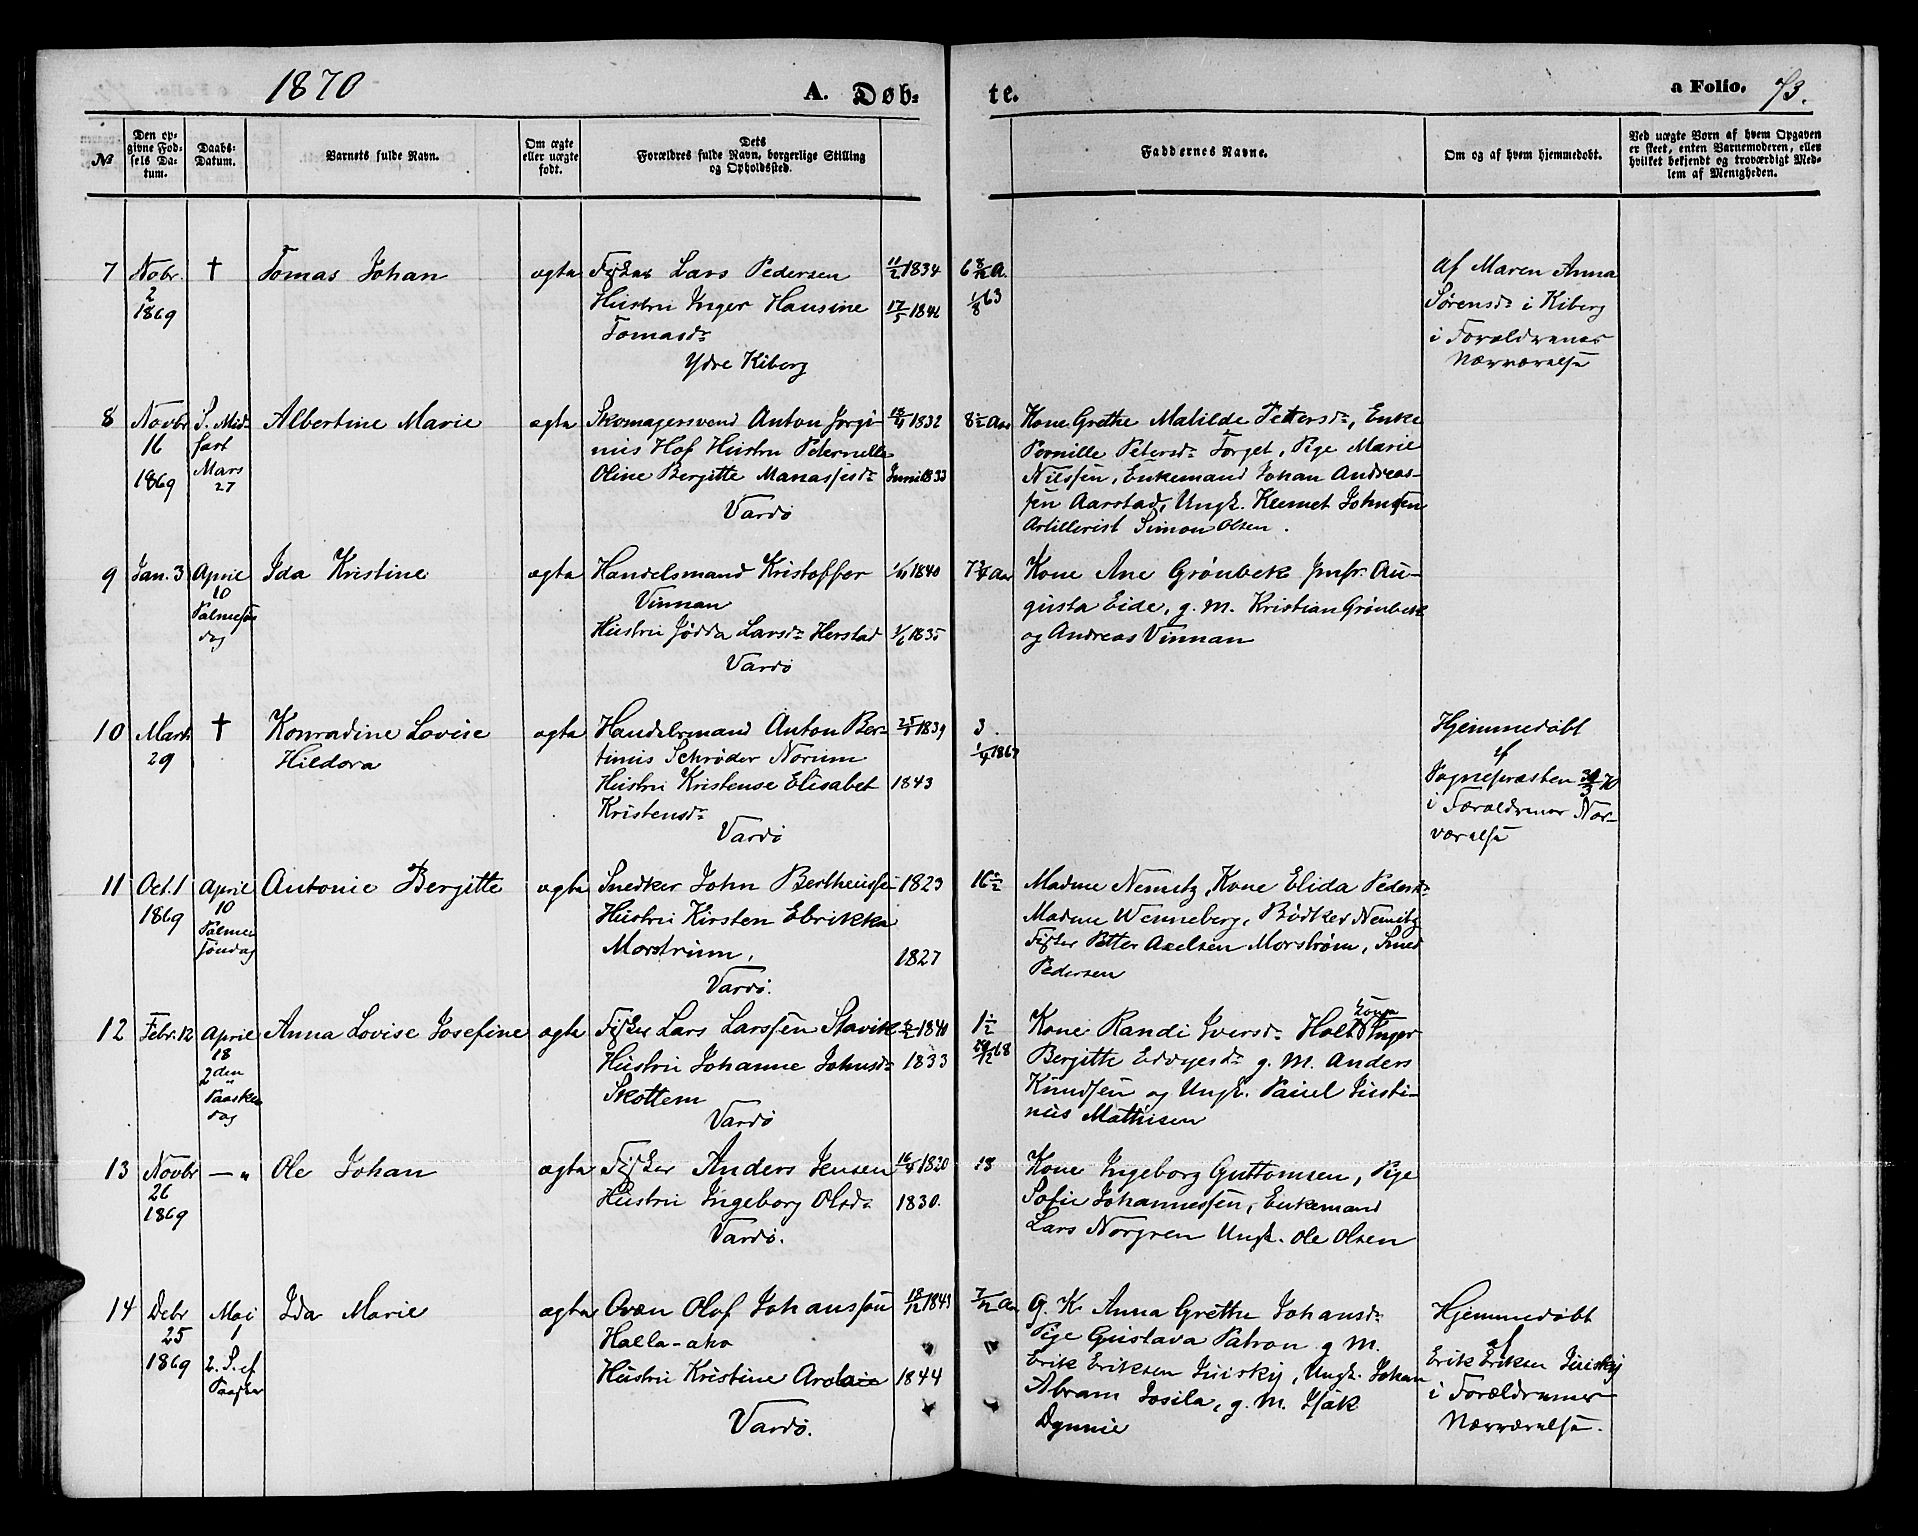 1870
A. Døb=
te.
a Folio. 73.
No
Den op=
givne Fød=
sels Da=
tum.
Daabs=
Datum.
Barnets fulde Navn.
Om ægte
eller uægte
født.
Dets
Forældres fulde Navn, borgerlige Stilling
og Opholdssted.
Faddernes Navne.
Om og af hvem hjemmedøbt.
Ved uægte Børn af hvem Opgaven
er skeet, enten Barnemoderen, eller
hvilket bekjendt og troværdigt Med=
lem af Menigheden.
7
Nobr.
2
1869
†
Tomas Johan
ægte
Fisker Lars Pedersen
Hustru Inger Hansine
Tomasdr
Ydre Kiberg
11/2 1834
17/5 1842
6 8/12 A.
1/8 63
Af Maren Anna
Sørensdr i Kiberg
i Forældrenes
Nærværelse
8
Novbr
16
1869
S. Mid=
fast
Mars
27
Albertine Marie
ægte
Skomagersvend Anton Jørgi=
nus Hof Hustru Peternelle
Oline Bergitte Manassesdr
Vardø
1832
Juni 1833
8 1/2 Aar
Kone Grethe Matilde Pettersdr, Enke
Pernille Petersdr Torget, Pige Marie
Nilssen, Enkemand Johan Andreas-
sen Aarstad, Ungk. Kennet Johnsen
Artillerist Simon Olsen.
9
Jan. 3
April
10
Palmesøn
dag
Ida Kristine
ægte
Handelsmand Kristoffer
Vinnan
Hustru Jødda Larsdr Herstad
Vardø
1840
1/6 1835
7 3/4 Aar
Kone Ane Grønbek Jmfr. Au-
gusta Eide, g. M. Kristian Grønbek
og Andreas Vinnan
10
Mars
29
†
Konradine Lovise
Hildora
ægte
Handelsmand Anton Ber=
tinus Schrøder Norum
Hustru Kristense Elisabet
Kristensdr
Vardø
1839
1843
3.
1/4 1867
Hjemmedøbt
af
Sognepræsten 30/3 70
i Forældrenes Nær-
værelse
11
Oct. 1
1869
April
10
Palme
søndag
Antonie Bergitte
ægte
Snedker John Bertheussen
Hustru Kirsten Ebrikka
Morstrøm,
Vardø.
1823
1827
16 1/2
Madme Nemitz, Kone Elida Pedersdr
Madme Wenneberg, Bødker Nemitz
Fisker Petter Axelsen Morstrøm, Smed
Pedersen
12
Febr. 12
April
18
2den
Paaske
dag
Anna Lovise Josefine
ægte
Fisker Lars Larssen Slavik
Hustru Johanne Johnsdr
Skottem
Vardø
1840
1833
1 1/2
29/12 68
Kone Randi Iversdr Holt Kone Inger
Bergitte g. M. Anders
Knudsen og Ungk. Paul Justi-
nus Mathisen
13
Novbr
26
1869
— "
Ole Johan
ægte
Fisker Anders Jensen
Hustru Ingeborg Olsdr
Vardø.
1820
1830.
18
Kone Ingeborg Guttomsen, Pige
Sofie Johannessen, Enkemand
Lars Norgren Ungk. Ole Olsen
14
Debr
25
1869
Mai
1
2. S. ef
Paaske
Ida Marie
ægte
Qvæn Olof Johanssøn
Halla-aho
Hustru Kristine
Vardø.
18/12 1843
1844
7/12 Aar
G. K. Anna Grethe Johansdr
Pige Gustava Patron g. M.
Erik Eriksen Juisky, Ungk. Johan
Abram Josila, g. M. Isak
Dynnie
Hjemmedøbt
af
Erik Eriksen Juisky
i Forældrenes
Nærværelse.